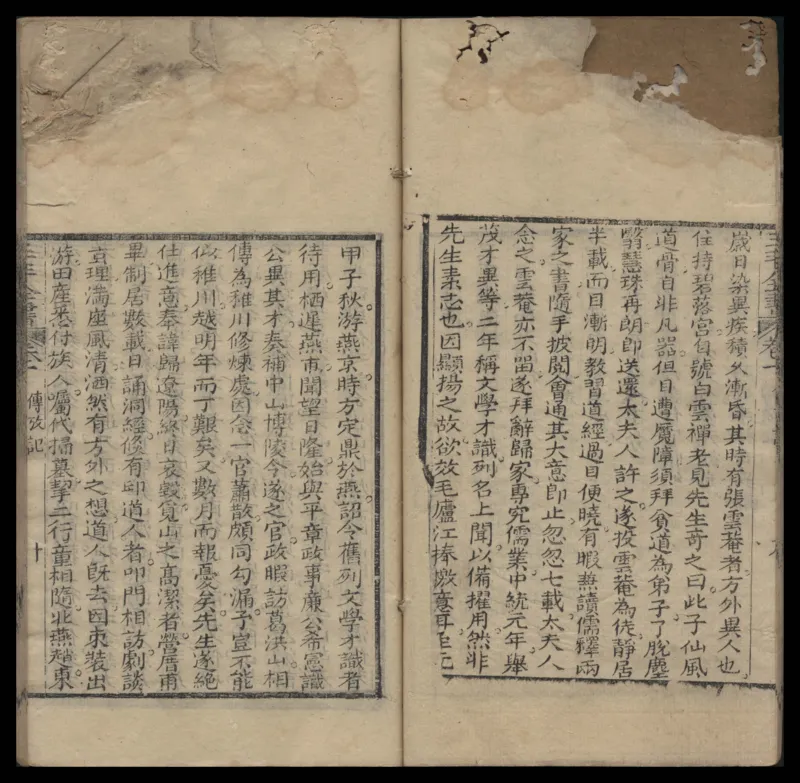 三丰全書 卷一
歲目染異疾積久漸昏其時有張雲菴者方外異人也
住持碧落宮自號白雲禪老見先生奇之曰此子仙風
道骨自非凡器但目遭魔障須拜貧道為弟子了脫塵
翳慧珠再朗即送還太夫人許之遂投雲菴為徒靜居
半載而目漸明教習道經過目便曉有暇兼讀儒釋兩
家之書隨手披閱會通其大意即止忽忽七載太夫人
念之雲菴亦不畱遂拜辭歸家專究儒業中統元年舉
茂才異等二年稱文學才識列名上聞以備擢用然非
先生素志也因顯揚之故欲效毛廬江捧檄意耳至元
甲子秋游燕京時方定鼎於燕詔令舊列文學才識者
待用栖遲燕市聞望日隆始與平章政事廉公希憲識
公異其才奏補中山博陵令遂之官政暇訪葛洪山相
傳為稚川修煉處因念一官蕭散頗同勾漏子豈不能
似稚川越明年而丁艱矣又數月而報憂矣先生遂絕
仕進意奉諱歸遼陽終日哀毀覓山之高潔者營厝甫
畢制居數載日誦洞經倏有邱道人者叩門相訪劇談
玄理滿座風清洒然有方外之想道人既去因束裝出
游田產悉付族人囑代掃墓挈二行童相隨北燕趙東
三丰全書 卷一 傳攷記 十